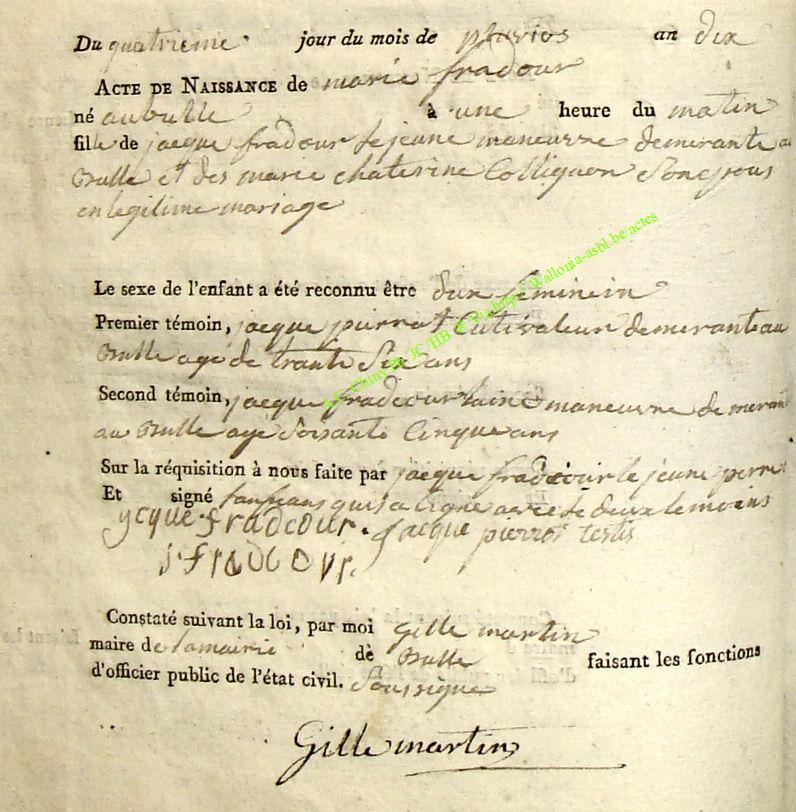 Du quatrieme jour du mois de pluvios an dix
ACTE DE NAISSANCE de marie fradcour
né au bulle à une heure du matin
fille de jacque fradcour le jeune maneuvre demerante au
Bulle et des marie chaterine Colliguon Son epous
en legitime mariage
Le sexe de l'enfant a été reconnu être dun feminein
Premier témoin, jacque pierrot Cutivateur demerante au
Bulle age de trante Six ans
Second témoin, jacque fradcour laine maneuvre de merant
au Bulle age Soisante Cinque ans
Sur la réquisition à nous faite par jacque fradcour le jeune perre
Et signé qui a Signe avec le deux temoins
ycque fradcour. Jacque pierrot testis
j. fradcour.
Constaté suivant la loi, par moi Gille martin
maire de lamairie dè Bulle faisant les fonctions
d'officier public de l'état civil. Soussigne
Gille martin
JC/HB Wallonia-asbl.be/actes